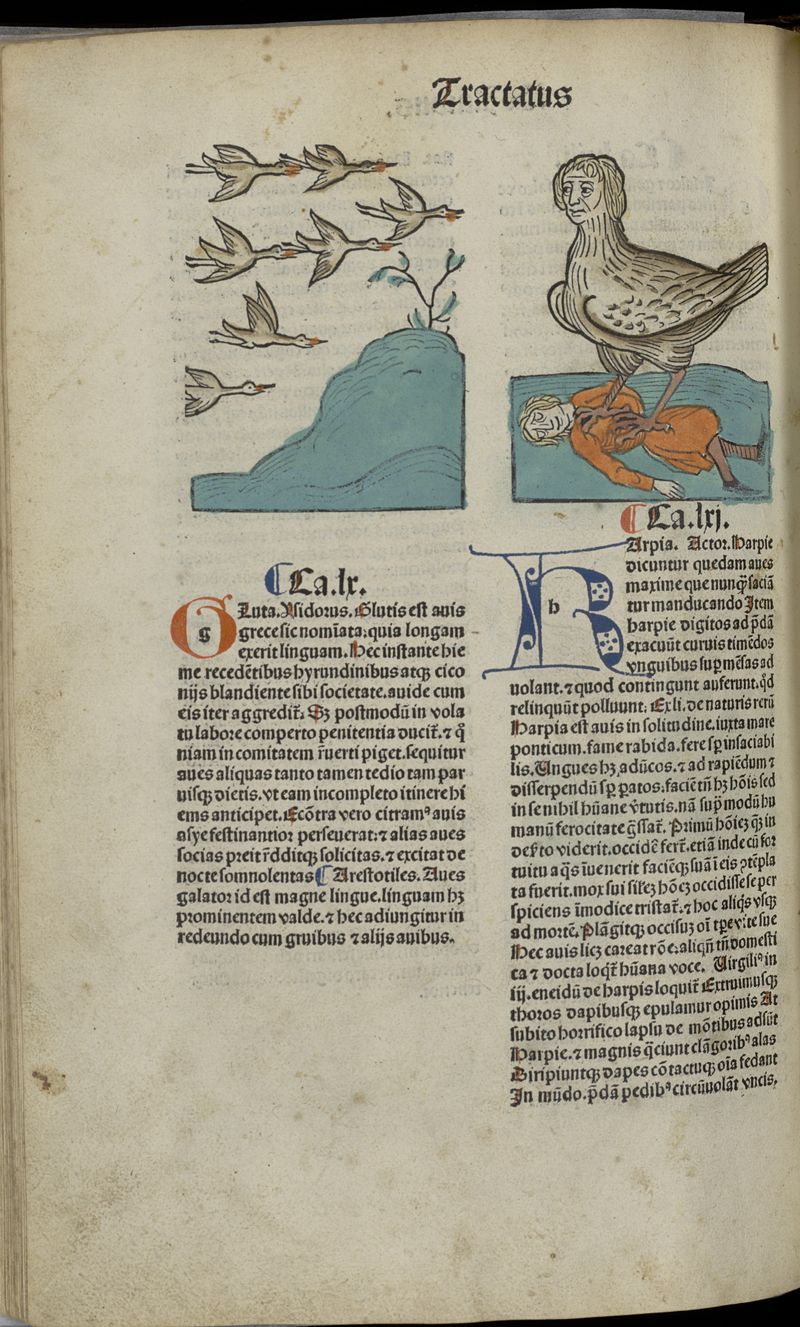 Tractatus
¶Ca.lx.
g Luta. Ysidorus. Glutis est auis
grece sic nomīata: quia longam
exerit linguam. Hec instante hie
me recedētibus hyrundinibus atqꝫ cico
nijs blandiente sibi societate. auide cum
eis iter aggredit̄: Sꝫ postmodū in vola
tu labore comperto penitentia ducit̄. ⁊ q̄
niam in comitatem r̄uerti piget. sequitur
aues aliquas tanto tamen tedio tam par
uisqꝫ dietis. vt eam incompleto itinere hi
ems anticipet. Ecōtra vero citramꝰ auis
asye festinantior perseuerat: ⁊ alias aues
socias preit r̄dditqꝫ solicitas. ⁊ excitat de
nocte somnolentas ¶ Arestotiles. Aues
galator id est magne lingue. linguam hꝫ
prominentem valde. ⁊ hec adiungitur in
redeundo cum gruibus ⁊ alijs auibus.
¶Ca.lxj.
h Arpia. Actor. Harpie
dicuntur quedam aues
maxime que nunqꝫ̄ saciā
tur manducando Item
harpie digitos ad p̄dā
exacuūt curuis timēdos
vnguibus suꝑ mēsas ad
uolant. ⁊ quod contingunt auferunt. q̄d
relinquūt polluunt: Ex li. de naturis rerū
Harpia est auis in solitudine. iuxta mare
ponticum. fame rabida. fere sꝑ insaciabi
lis. Ungues hꝫ. adūcos. ⁊ ad rapiēdum ⁊
disserpendū sꝑ ꝑatos: faciē tn̄ hꝫ hōis sed
in se nihil hūane v̓tutis. nā supͣ modū hu
manū ferocitate g̓ssat̄. Primū hōieꝫ qꝫ̄ in
des̓to viderit. occidē fert̄. etiā inde cū for
tuitu aq̄s īuenerit faciēqꝫ suā ī eis ꝯtēpla
ta fuerit. mox sui sil̓eꝫ hōeꝫ occidisse se per
spiciens īmodice tristat̄. ⁊ hoc aliqn̄ vsqꝫ
ad mortē. Plāgitqꝫ occisuꝫ oī tꝑe vite sue
Hec auis licꝫ careat rōe. aliqn̄ tn̄ domesti
ca ⁊ docta loqt̄ hūana voce. Uirgiliꝰ in
iij. eneidū de harpis loquit̄ Extruimusqꝫ
thoros dapibusqꝫ epulamur opimis At
subito horrifico lapsu de mōtibus adsūt
Harpie. ⁊ magnis q̄ciunt clāgoribꝰ alas
Diripiuntqꝫ dapes cōtactuqꝫ oīa fedant
In mūdo. p̄dā pedibꝰ circūuolāt vncis.